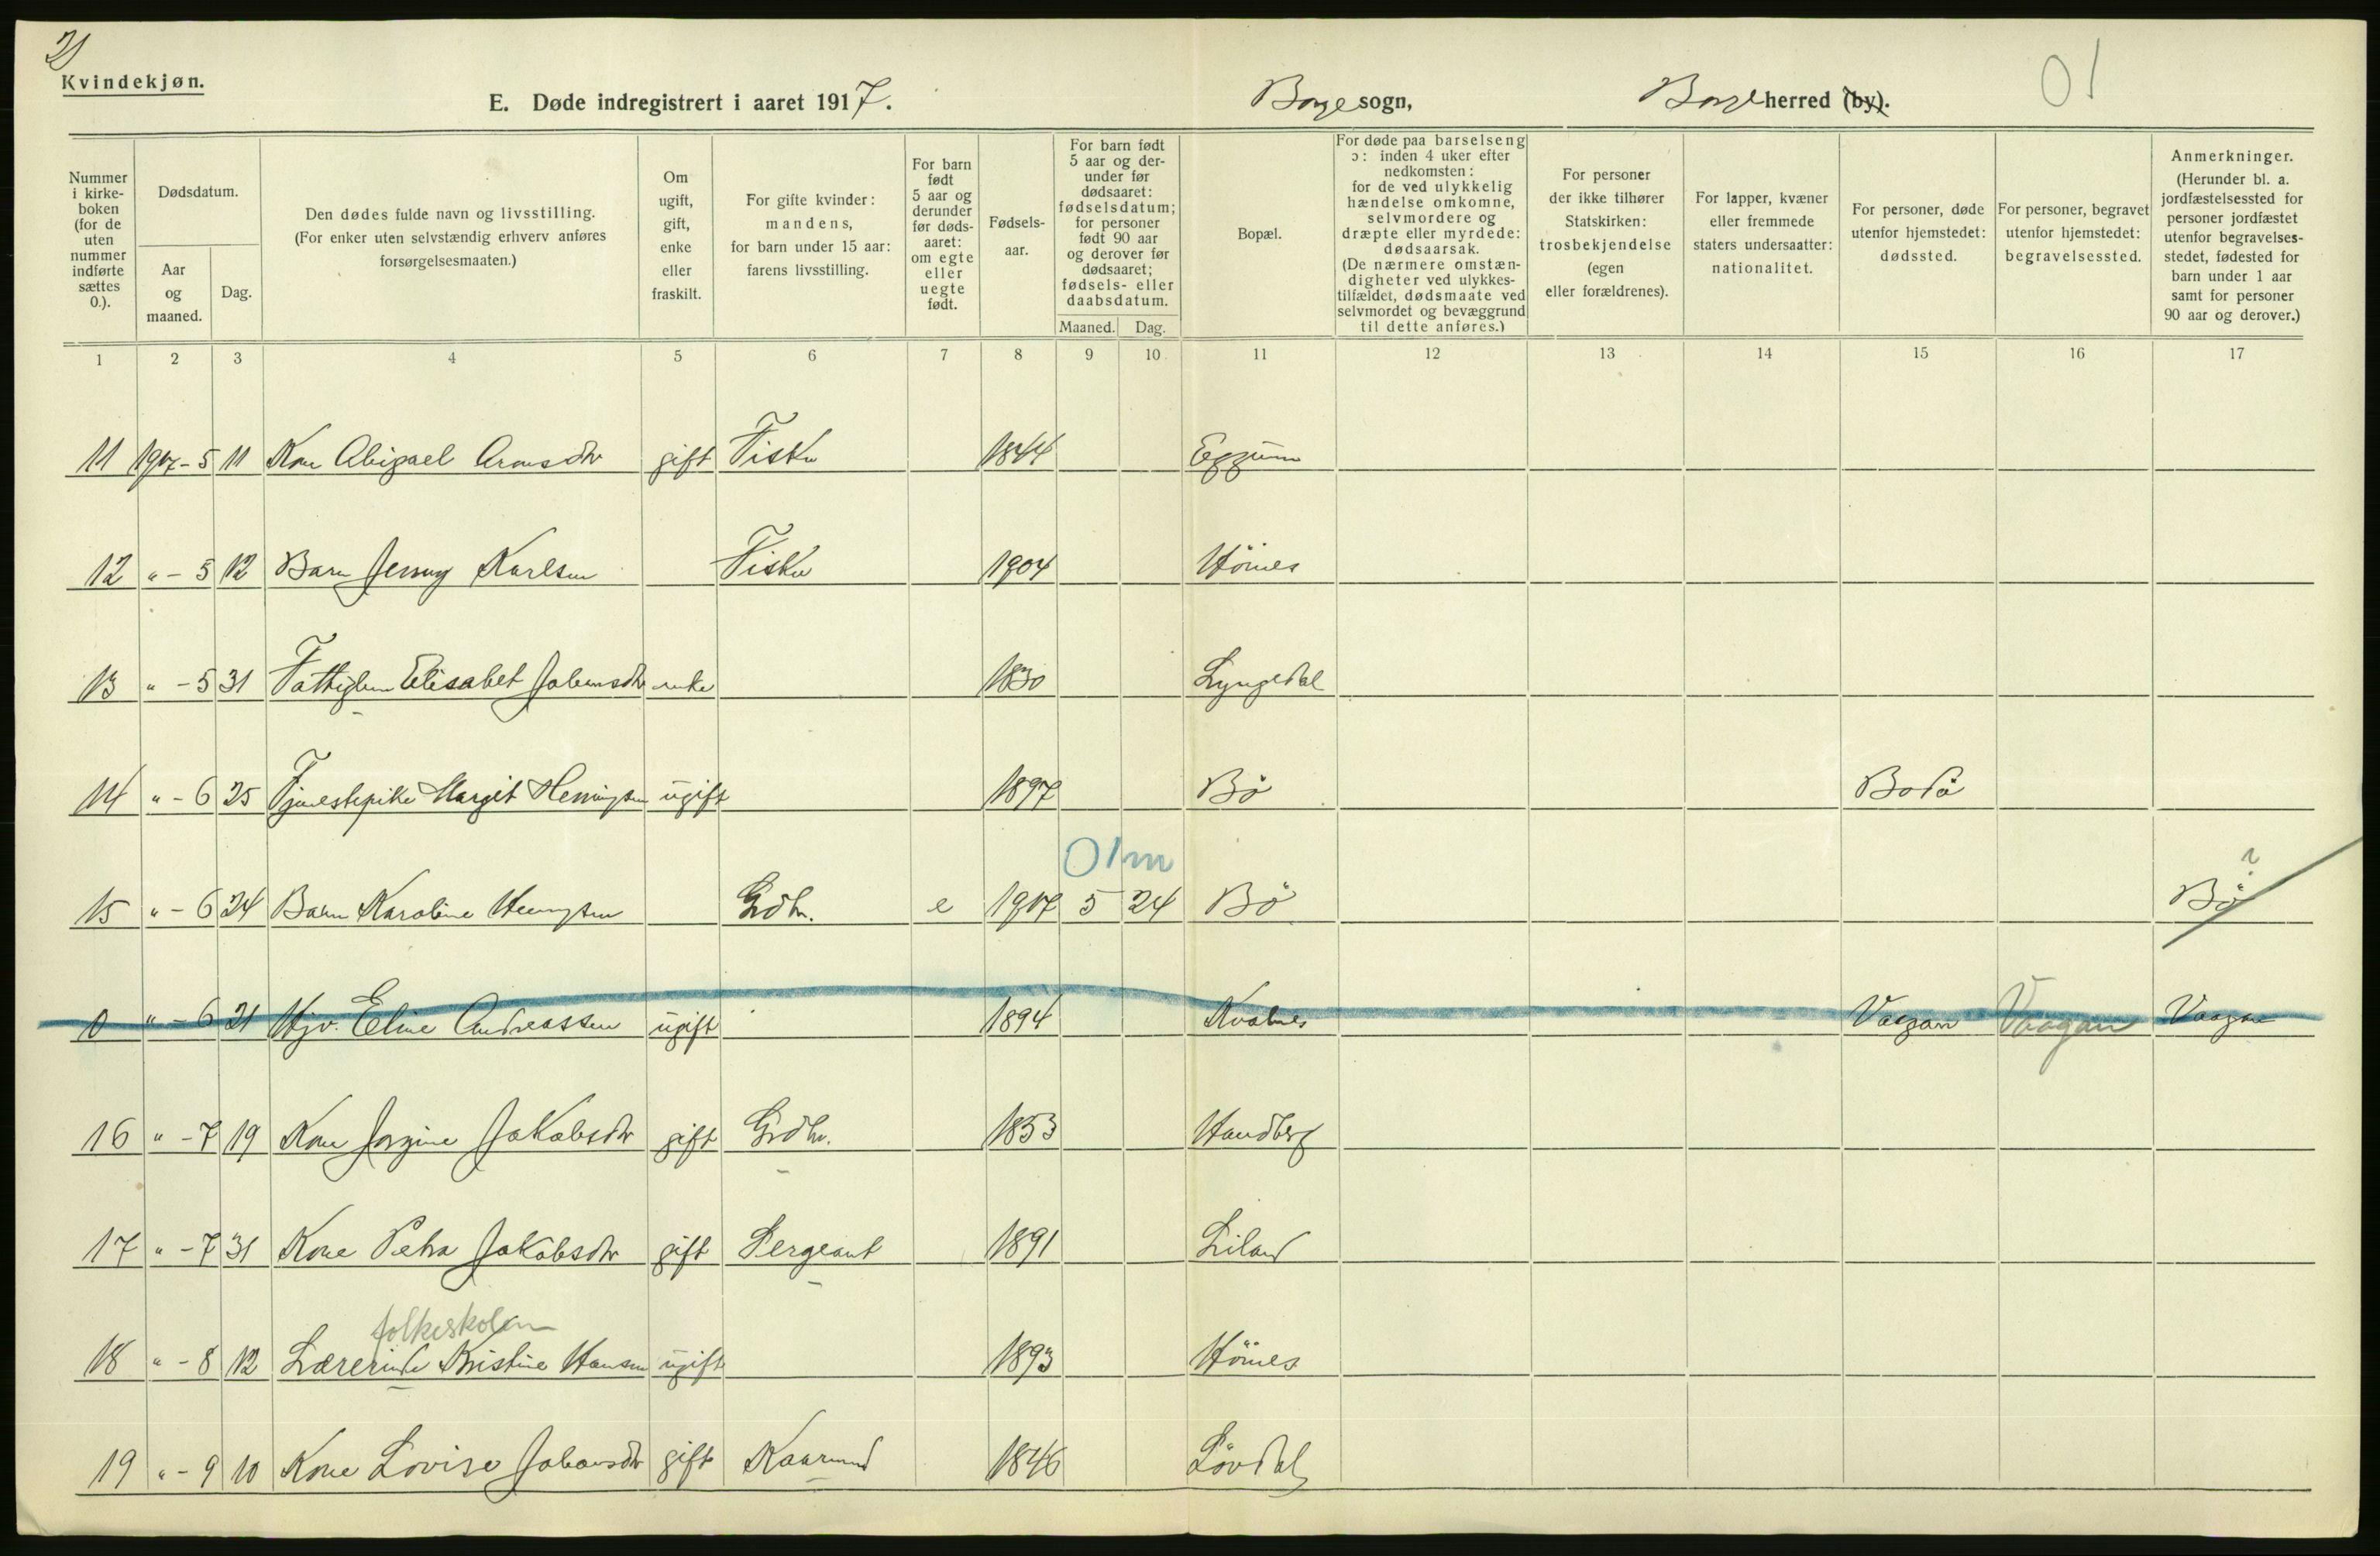 2)
Kvindekjøn.
E. Døde indregistrert i aaret 1917. Borge sogn, Borge herred (by). 01
Nummer i kirkeboken (for de uten nummer indførte sættes 0.).
Dødsdatum.
Aar og maaned.
Dag.
Den dødes fulde navn og livsstilling. (For enker uten selvstændig erhverv anføres forsørgelsesmaaten.)
Om ugift, gift, enke eller fraskilt.
For gifte kvinder: mandens, for barn under 15 aar: farens livsstilling.
For barn født 5 aar og derunder før dødsaaret: om egte eller uegte født.
Fødselsaar.
For barn født 5 aar og derunder før dødsaaret: fødselsdatum; for personer født 90 aar og derover før dødsaaret; fødsels- eller daabsdatum.
Maaned. Dag.
Bopæl.
For døde paa barselseng ɔ: inden 4 uker efter nedkomsten: for de ved ulykkelig hændelse omkomne, selvmordere og dræpte eller myrdede: dødsaarsak. (De nærmere omstændigheter ved ulykkestilfældet, dødsmaate ved selvmordet og bevæggrund til dette anføres.)
For personer der ikke tilhører Statskirken: trosbekjendelse (egen eller forældrenes).
For lapper, kvæner eller fremmede staters undersaatter: nationalitet.
For personer, døde utenfor hjemstedet: dødssted.
For personer, begravet utenfor hjemstedet: begravelsessted.
Anmerkninger. (Herunder bl. a. jordfæstelsessted for personer jordfæstet utenfor begravelsesstedet, fødested for barn under 1 aar samt for personer 90 aar og derover.)
1 2 3 4 5 6 7 8 9 10 11 12 13 14 15 16 17
11 1917-5 11 Kone Abigael Aronsdtr gift Fisker 1844 Eggum
12 " - 5 12 Barn Jenny Karlsen Fisker 1904 Hönes
13 " - 5 31 Fattiglem Elisabet Johansdtr enke 1830 Lyngedal
14 " - 6 25 Tjenestepike Margit Henningsen ugift 1897 Bö Bodö
01m
15 " - 6 24 Barn Karoline Henningsen Grdbr. e 1917 5 24 Bö Bö ?
0 " - 6 21 Hjv. Eline Andreassen ugift 1894 Kvalnes Vaagan Vaagan Vaagan
16 " - 7 19 Kone Jorgine Jakobsdtr gift Grdbr. 1853 Handberg
17 " - 7 31 Kone Petra Jakobsdtr gift Sergeant 1891 Liland
folkeskolen
18 " - 8 12 Lærerinde Kristine Hansen ugift 1893 Hönes
19 " - 9 10 Kone Lovise Johansdtr gift Kaarmand 1846 Lövdal